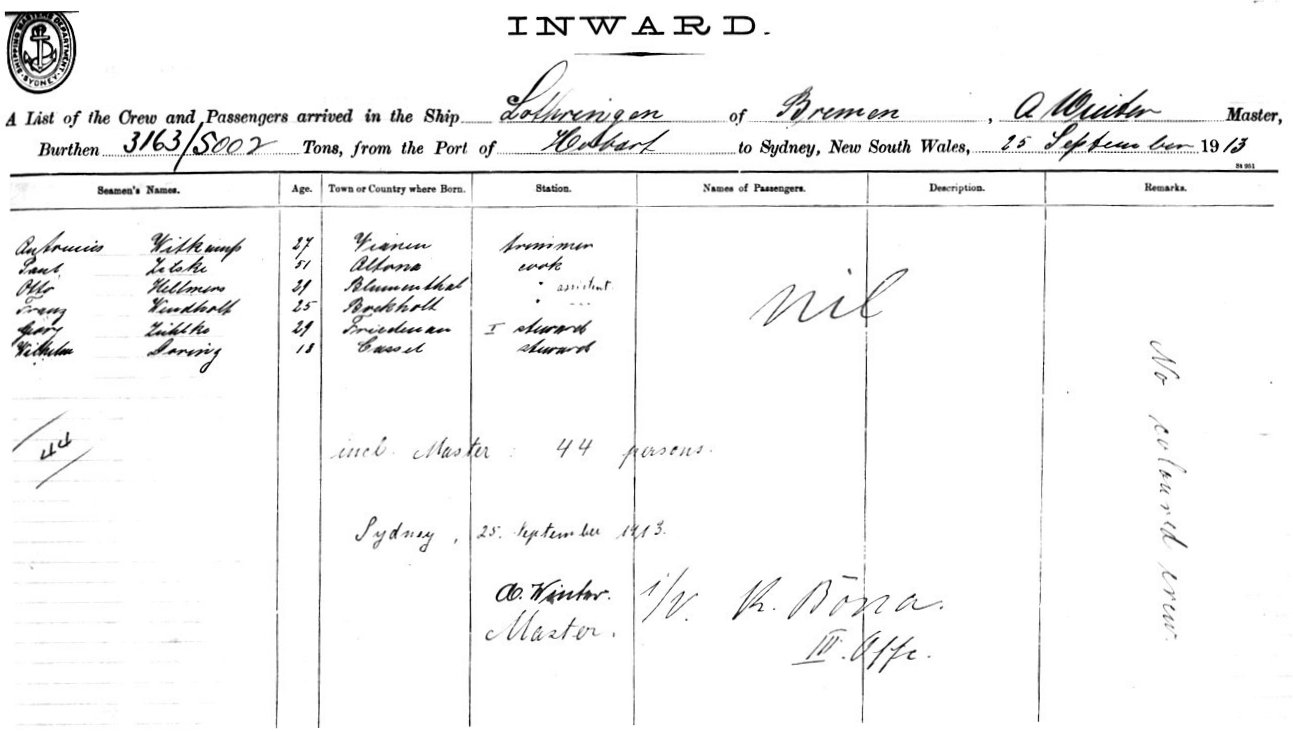 SHIPPING MASTERS DEPARTMENT. SYDNEY
INWARD.
A List of the Crew and Passengers arrived in the Ship Lothringen of Bremen, A Winter Master,
Burthen 3163/5002 Tons, from the Port of Hobart to Sydney, New South Wales, 25 September 1913
St 951
Seamen's Names. Age. Town or Country where Born. Station. Names of Passengers. Description. Remarks.
Antonius Witkamp 27 Vianen trimmer
Paul Zilske 51 Altona cook
Otto Hellmers 29 Blumenthal " assistent
Franz Wendholt 25 Bockholt "
29 Friedenau I steward
Wilhelm Doring 18 Cassel steward
nil
No coloured crew.
44
incl. Master: 44 persons.
Sydney, 25. September 1913.
A. Winter. i/V. K. Bōna.
Master. III. Offc.